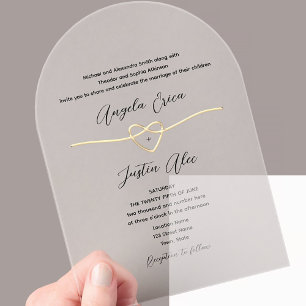 Michael and Alexandra Smith along with
Theodor and Sophia Atkinson
invite you to share and celebrate the marriage of their children
Angela Erica
+
Justin Alec
SATURDAY
THE TWENTY FIFTH OF JUNE
two thousand and number here
at three o'clock in the afternoon
Location Name
123 Street Name
Town, State
Reception to follow